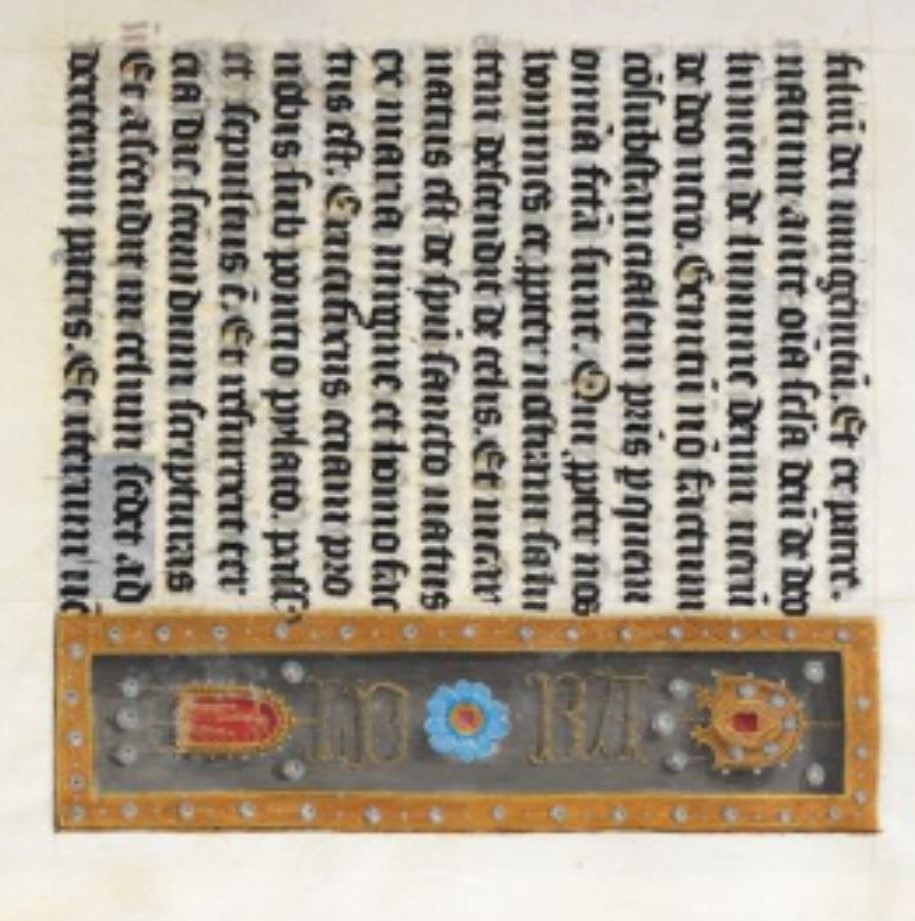 filiū dei unigenitū. Et ex patre.
natum ante oīa secla deū de deo
lumen de lumine deum verū
de deo vero. Genitū nō factum
cōsubstancialem pris p quem
omnia fctā sunt. Qui ppter nos
homines et ppter nostram salu
tem descendit de celis. Et incar
natus est de spū sancto natus
ex maria virgine et homo fac
tus est. Crucifixus etiam pro
nobis sub poncio pylato. pass
et sepultus ē. Et resurrexit ter
cia die secundum scripturas
Et ascendit in celum sedet ad
dexteram patris. Et iterum